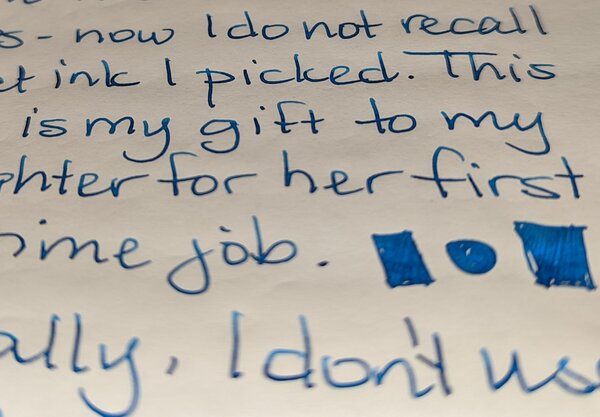 s - now I do not recall
et ink I picked. This
is my gift to my
hter for her first
ime job.
ally, I don't us